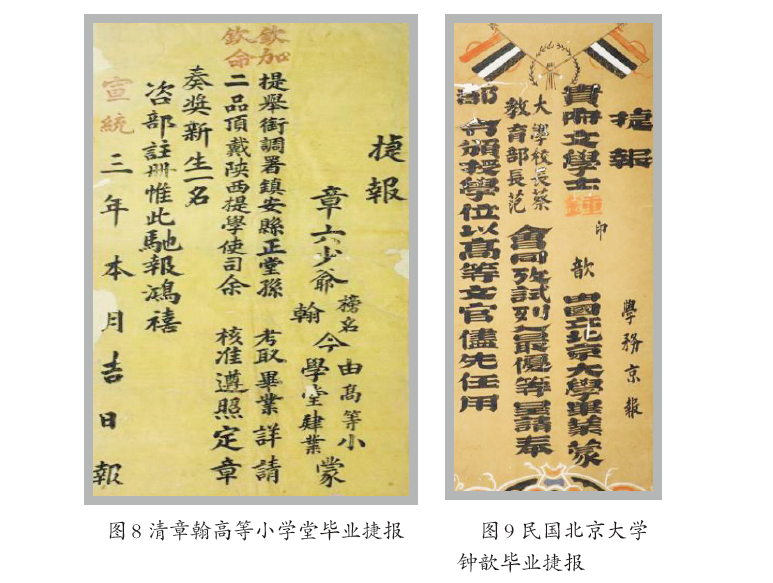 捷報
章六少爺榜名翰今由高等小學堂肄業蒙
欽加提舉銜調署鎮安縣正堂孫考取畢業詳請
欽命二品頂戴陝西提學使司余核准遵照定章
奏奬新生一名
咨部註冊惟此馳報鴻禧
宣統三年本月吉日報
捷報 學務京報
貴府文學士鍾印歆由國立北京大學畢業蒙
大學校長蔡
教育部長范
會同攷試列最優等呈請奉
部令頒授學位以高等文官儘先任用
图8清章翰高等小学堂毕业捷报
图9民国北京大学
钟歆毕业捷报